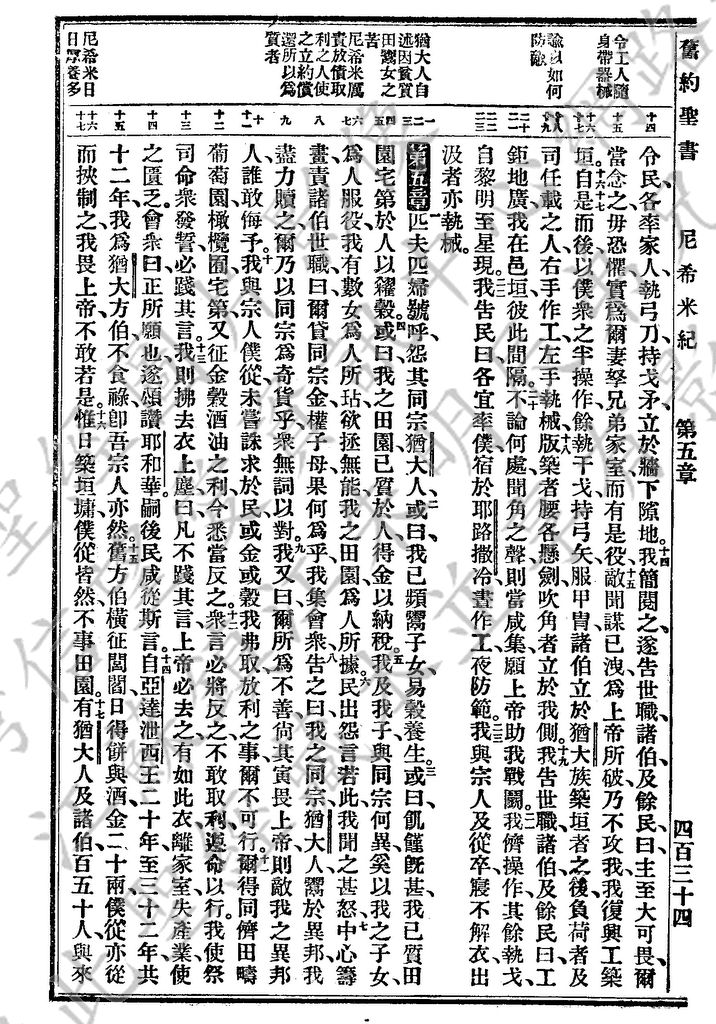 舊約聖書 尼希米紀 第五章 四百三十四
令工人隨
身帶器械
諭以如何
防敵
猶大人自
述因貧質
田鬻女之
苦
尼希米厲
責放債取
利之人使
之立約償
還所以為
質者
尼希米日
日原養多
十四 令民各率家人執弓刀持戈矛立於牆下隙地我簡閱之遂告世職諸伯及餘民曰主至大可畏爾
十五 當念之毋恐懼實為爾妻孥兄弟家室而有是役敵聞謀已洩為上帝所破乃不攻我我復興工築
十六 十七 垣自是而後以僕衆之半操作餘執干戈持弓矢服甲胄諸伯立於猶大族築垣者之後負荷者及
十八 十九 司任載之人右手作工左手執械版築者腰各懸劍吹角者立於我側我告世職諸伯及餘民曰工
二十 二一 鉅地廣我在邑垣彼此間隔不論何處聞角之聲則當咸集願上帝助我戰鬬我儕操作其餘執戈
二二 二三 自黎明至星現我告民曰各宜率僕宿於耶路撒冷晝作工夜防範我與宗人及從卒寢不解衣出
汲者亦執械
一 二 三 第五章 匹夫匹婦號呼怨其同宗猶大人或曰我已頻鬻子女易穀養生或曰飢饉旣甚我已質田
四 五 園宅第於人以糴穀或曰我之田園已質於人得金以納稅我及我子與同宗何異奚以我之子女
六 七 為人服役我有數女為人所玷欲拯無能我之田園為人所據民出怨言若此我聞之甚怒中心籌
八 畫責諸伯世職曰爾貸同宗金權子母果何為乎我集會衆告之曰我之同宗猶大人鬻於異邦我
九 盡力贖之爾乃以同宗為奇貨乎衆無詞以對我又曰爾所為不善尚其寅畏上帝則敵我之異邦
十 十一 人誰敢侮予我與宗人僕從未嘗誅求於民或金或穀我弗取放利之事爾不可行爾得同儕田疇
十二 葡萄園橄欖囿宅第又征金穀酒油之利今悉當反之衆言必將反之不敢取利遵命以行我使祭
十三 司命衆發誓必踐其言我則拂去衣上塵曰凡不踐其言上帝必去之有如此衣離家室失產業使
十四 之匱乏會衆曰正所願也遂頌讚耶和華嗣後民咸從斯言自亞達泄西王二十年至三十二年共
十五 十二年我為猶大方伯不食祿卽吾宗人亦然舊方伯橫征閭閻日得餅與酒金二十兩僕從亦從
十六 十七 而挾制之我畏上帝不敢若是惟日築垣墉僕從皆然不事田園有猶大人及諸伯百五十人與來